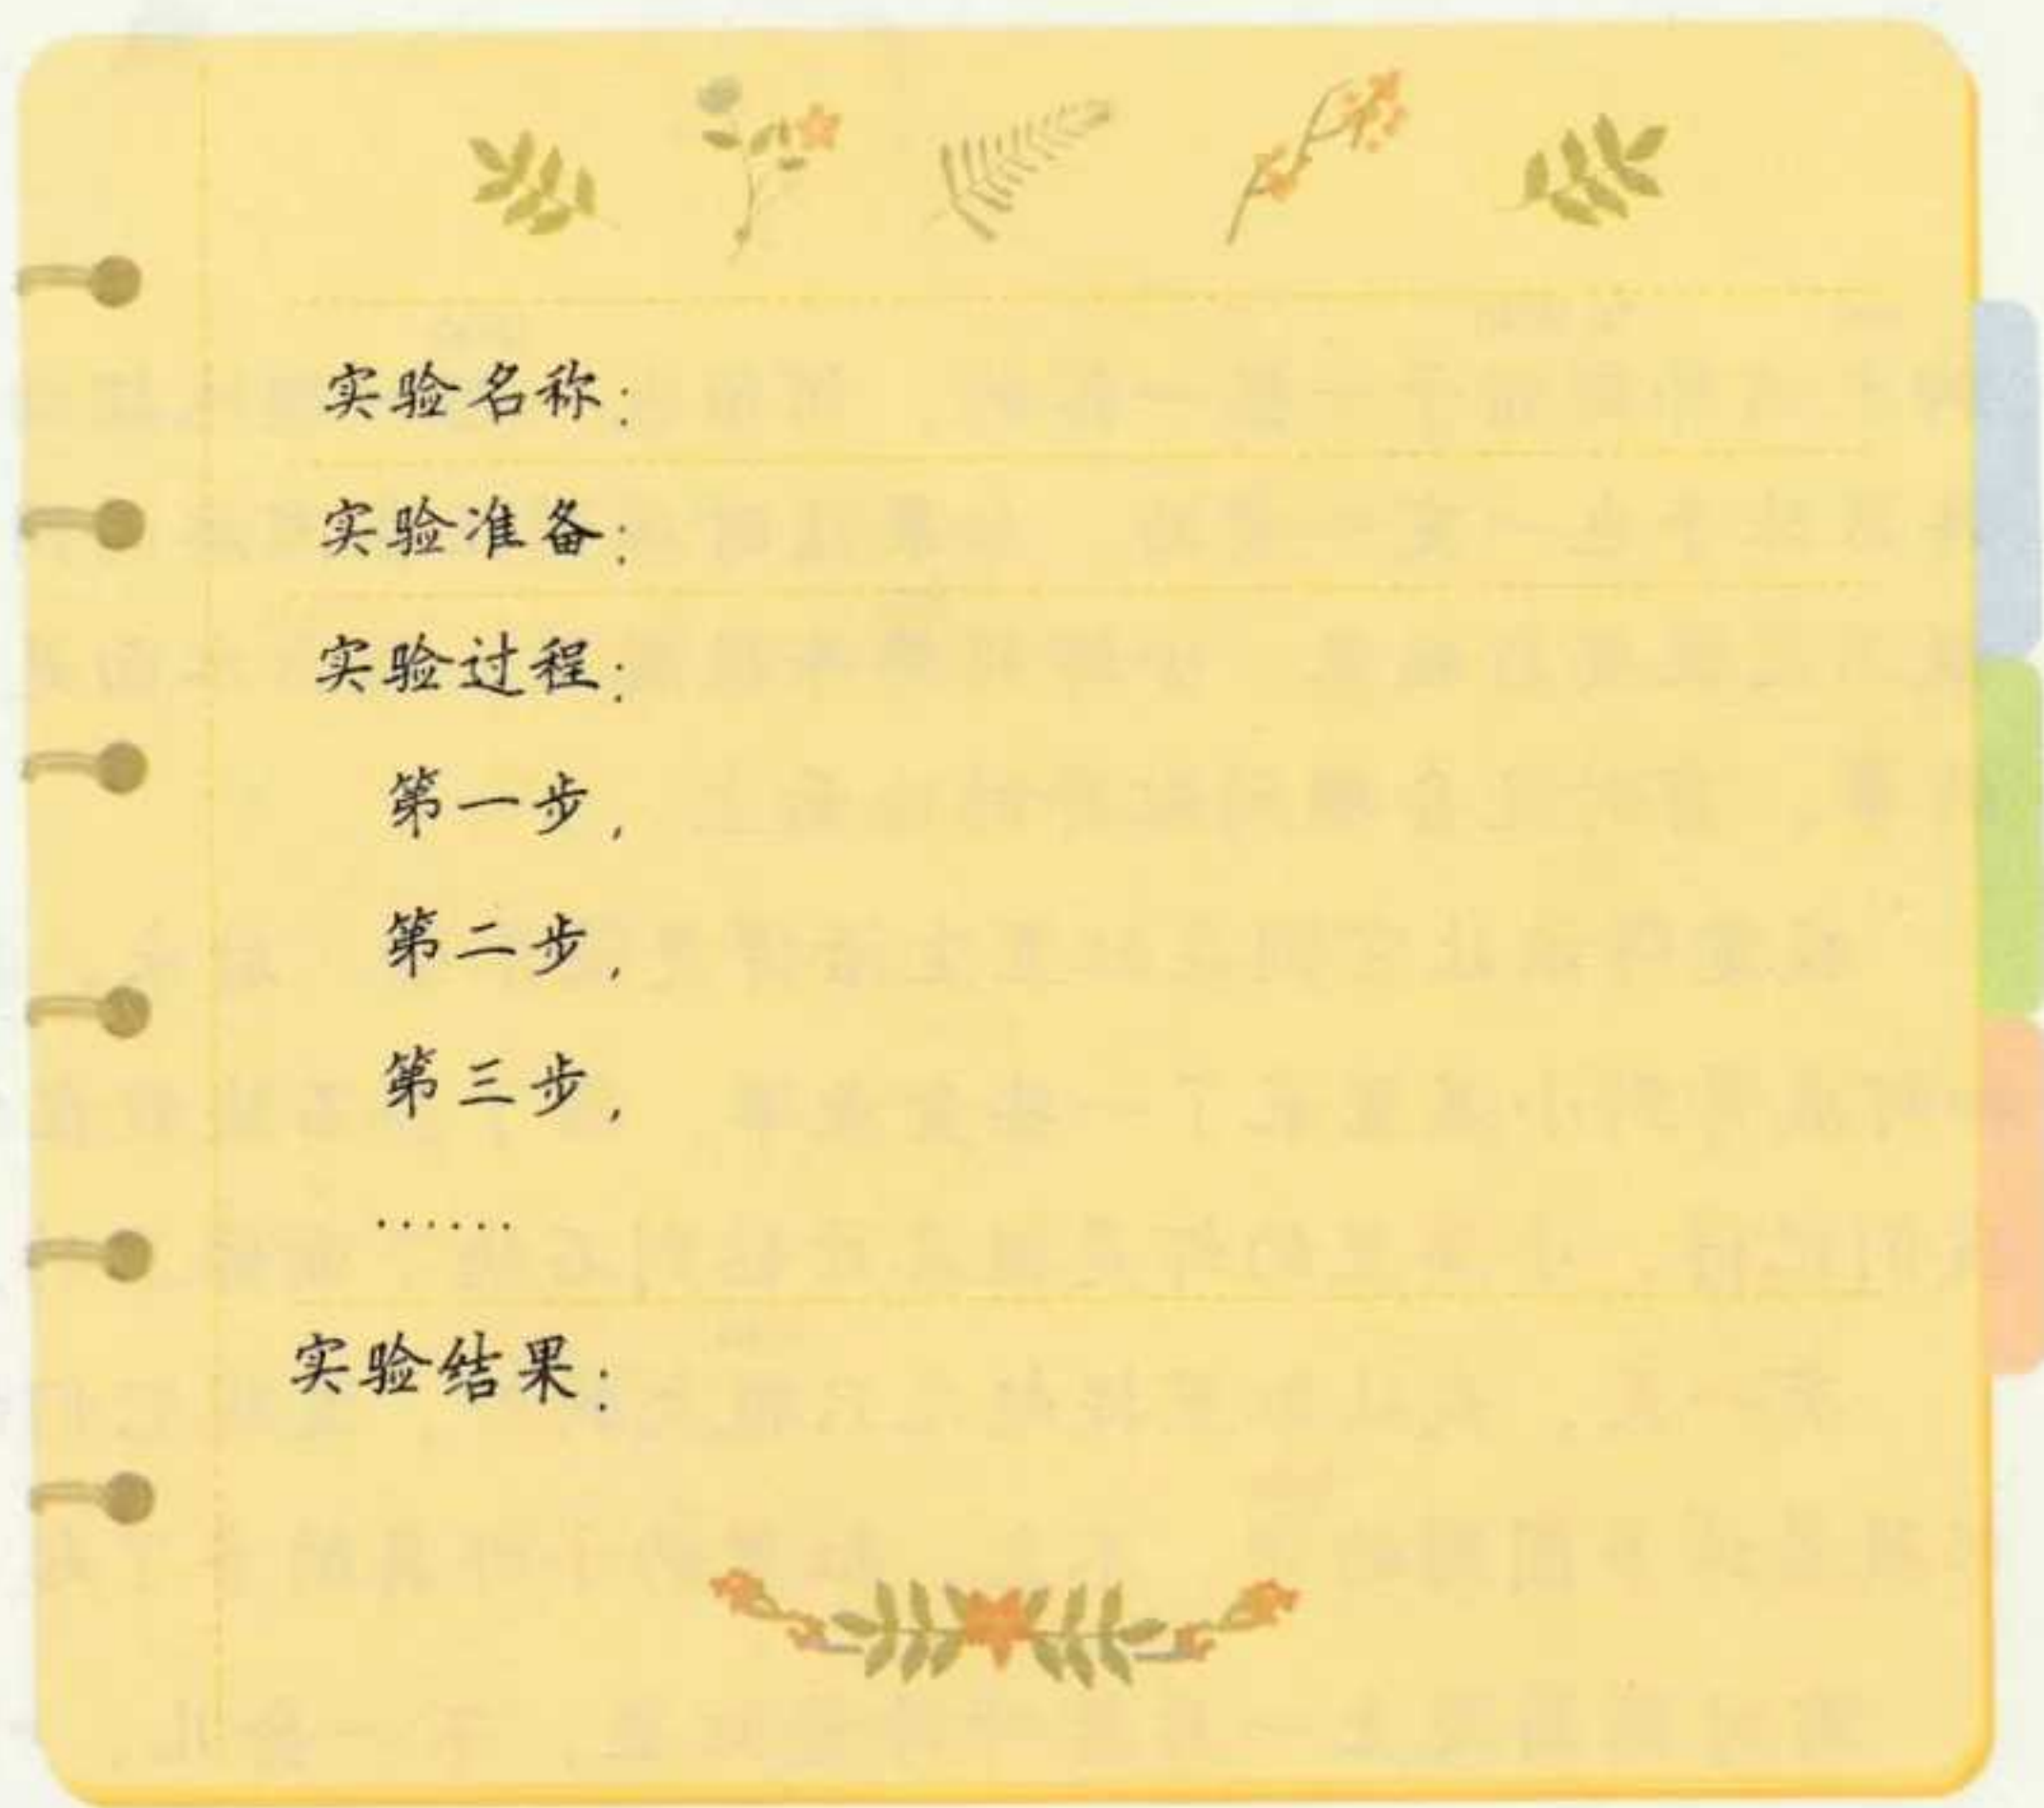 实验名称：
实验准备：
实验过程：
第一步，
第二步，
第三步，
……
实验结果：